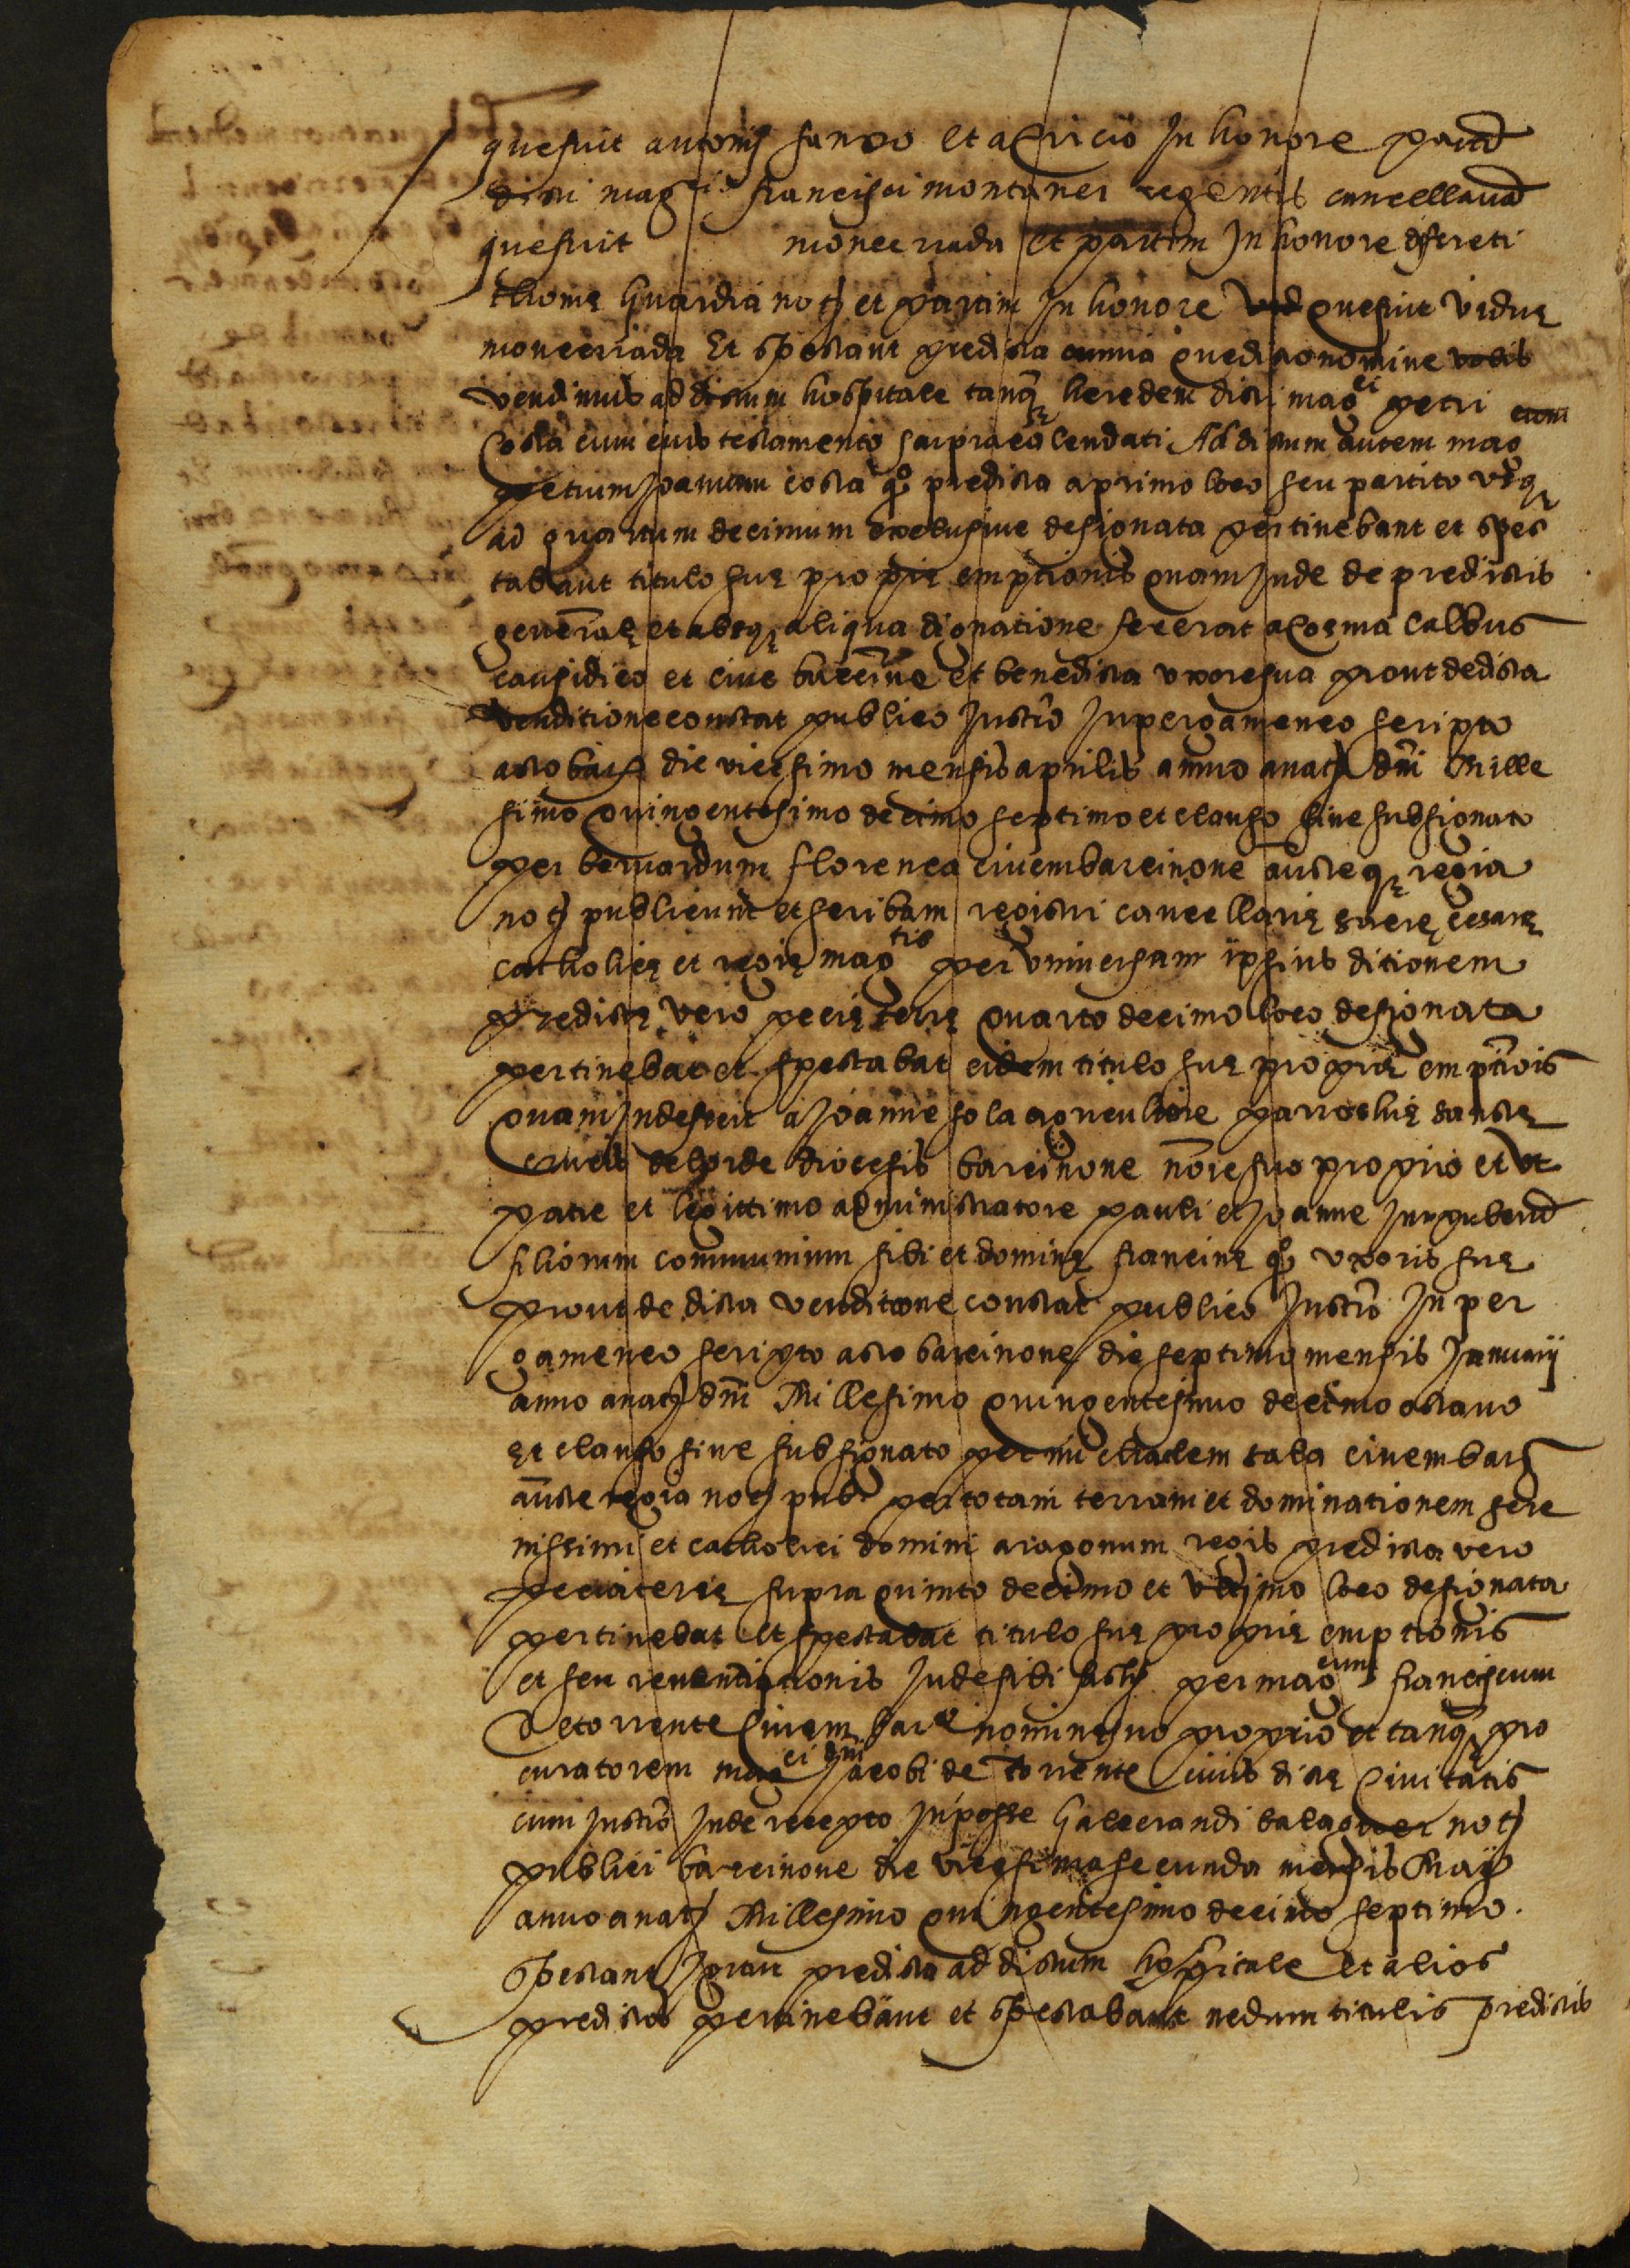 que fuit antonij et a Circio In honore
dicti mag.ci francisci montaner regentis cancellariā
que fuit moncerriada et partim In honore discreti
thomę Guardia not. et partim In honore que fuit viduę
moncerriada Et spectant predicta omnia que dicto nomine vobis
vendimus ad dictum hospitale tanqꝫ heredem dicti mag.ci petri
Costa cum eius testamento Ad dictum autem mag.cum
petrum Joannem costa qͦ predicta a primo loco seu partito vsqꝫ
ad quartum decimum exclusiue designata pertinebant et spec
tabant titulo suę proprię emptionis quam Inde de predictis
gener.r et absqꝫ aliqua dignatione fecerat a Cosma Calbus
causidico et ciue barcin̄e et benedicta vxore sua prout de dicta
venditione constat publico Instr̄o In pergameneo scripto
acto barñ die vicesimo mensis aprilis anno a nat. dn̄i Mille
simo quingentesimo decimo septimo et clauso siue subsignato
per bernardum florenca ciuem barcinone aucteqꝫ regia
not. publicum et scribam registri cancellarię sacrę cesareę
catholicę et regię mag.tis per vniuersam ipsius ditionem
predictę vero pecię terrę quarto decimo loco designata
pertinebat et spectabat eidem titulo suę proprię empt̄ōis
quam Inde fecit a Joanne sola agricultore parrochię sanctę
Crucis de lorde diocesis barcinone nōre suo proprio et vt
patre et legittimo administratore pauli et Joanne Inpuberū
filiorum communium sibi et dominę francinę qͦ vxoris suę
prout de dicta venditione constat publico Instr̄o In per
gameneo scripto acto barcinone die septimo mensis Januarij
anno a nat. dn̄i Millesimo quingentesimo decimo octauo
et clauso siue subsignato per michaelem sala ciuem barñ
aucte regia not. pub.m per totam terram et dominationem sere
nissimi et catholici domini aragonum regis predicta vero
pecia terrę supra quinto decimo et vltimo loco designata
pertinebat et spectabat titulo suę proprię emptionis
et seu reuenditionis Inde sibi factę per mag.cum franciscum
de torrente Ciuem barñ nomine suo proprio et tanqꝫ pro
curatorem mag.ci dn̄i Jacobi de torrente Ciuis dictę Ciuitatis
cum Instr̄o Inde recepto In posse Galcerandi balaguer not.
publici barcinone die vicesima secunda mensis Maij
anno a nat. Millesimo quingentesimo decimo septimo.
Spectant predicta ad dictum hospitale et alios
predictos pertinebant et spectabant nedum titulis predictis